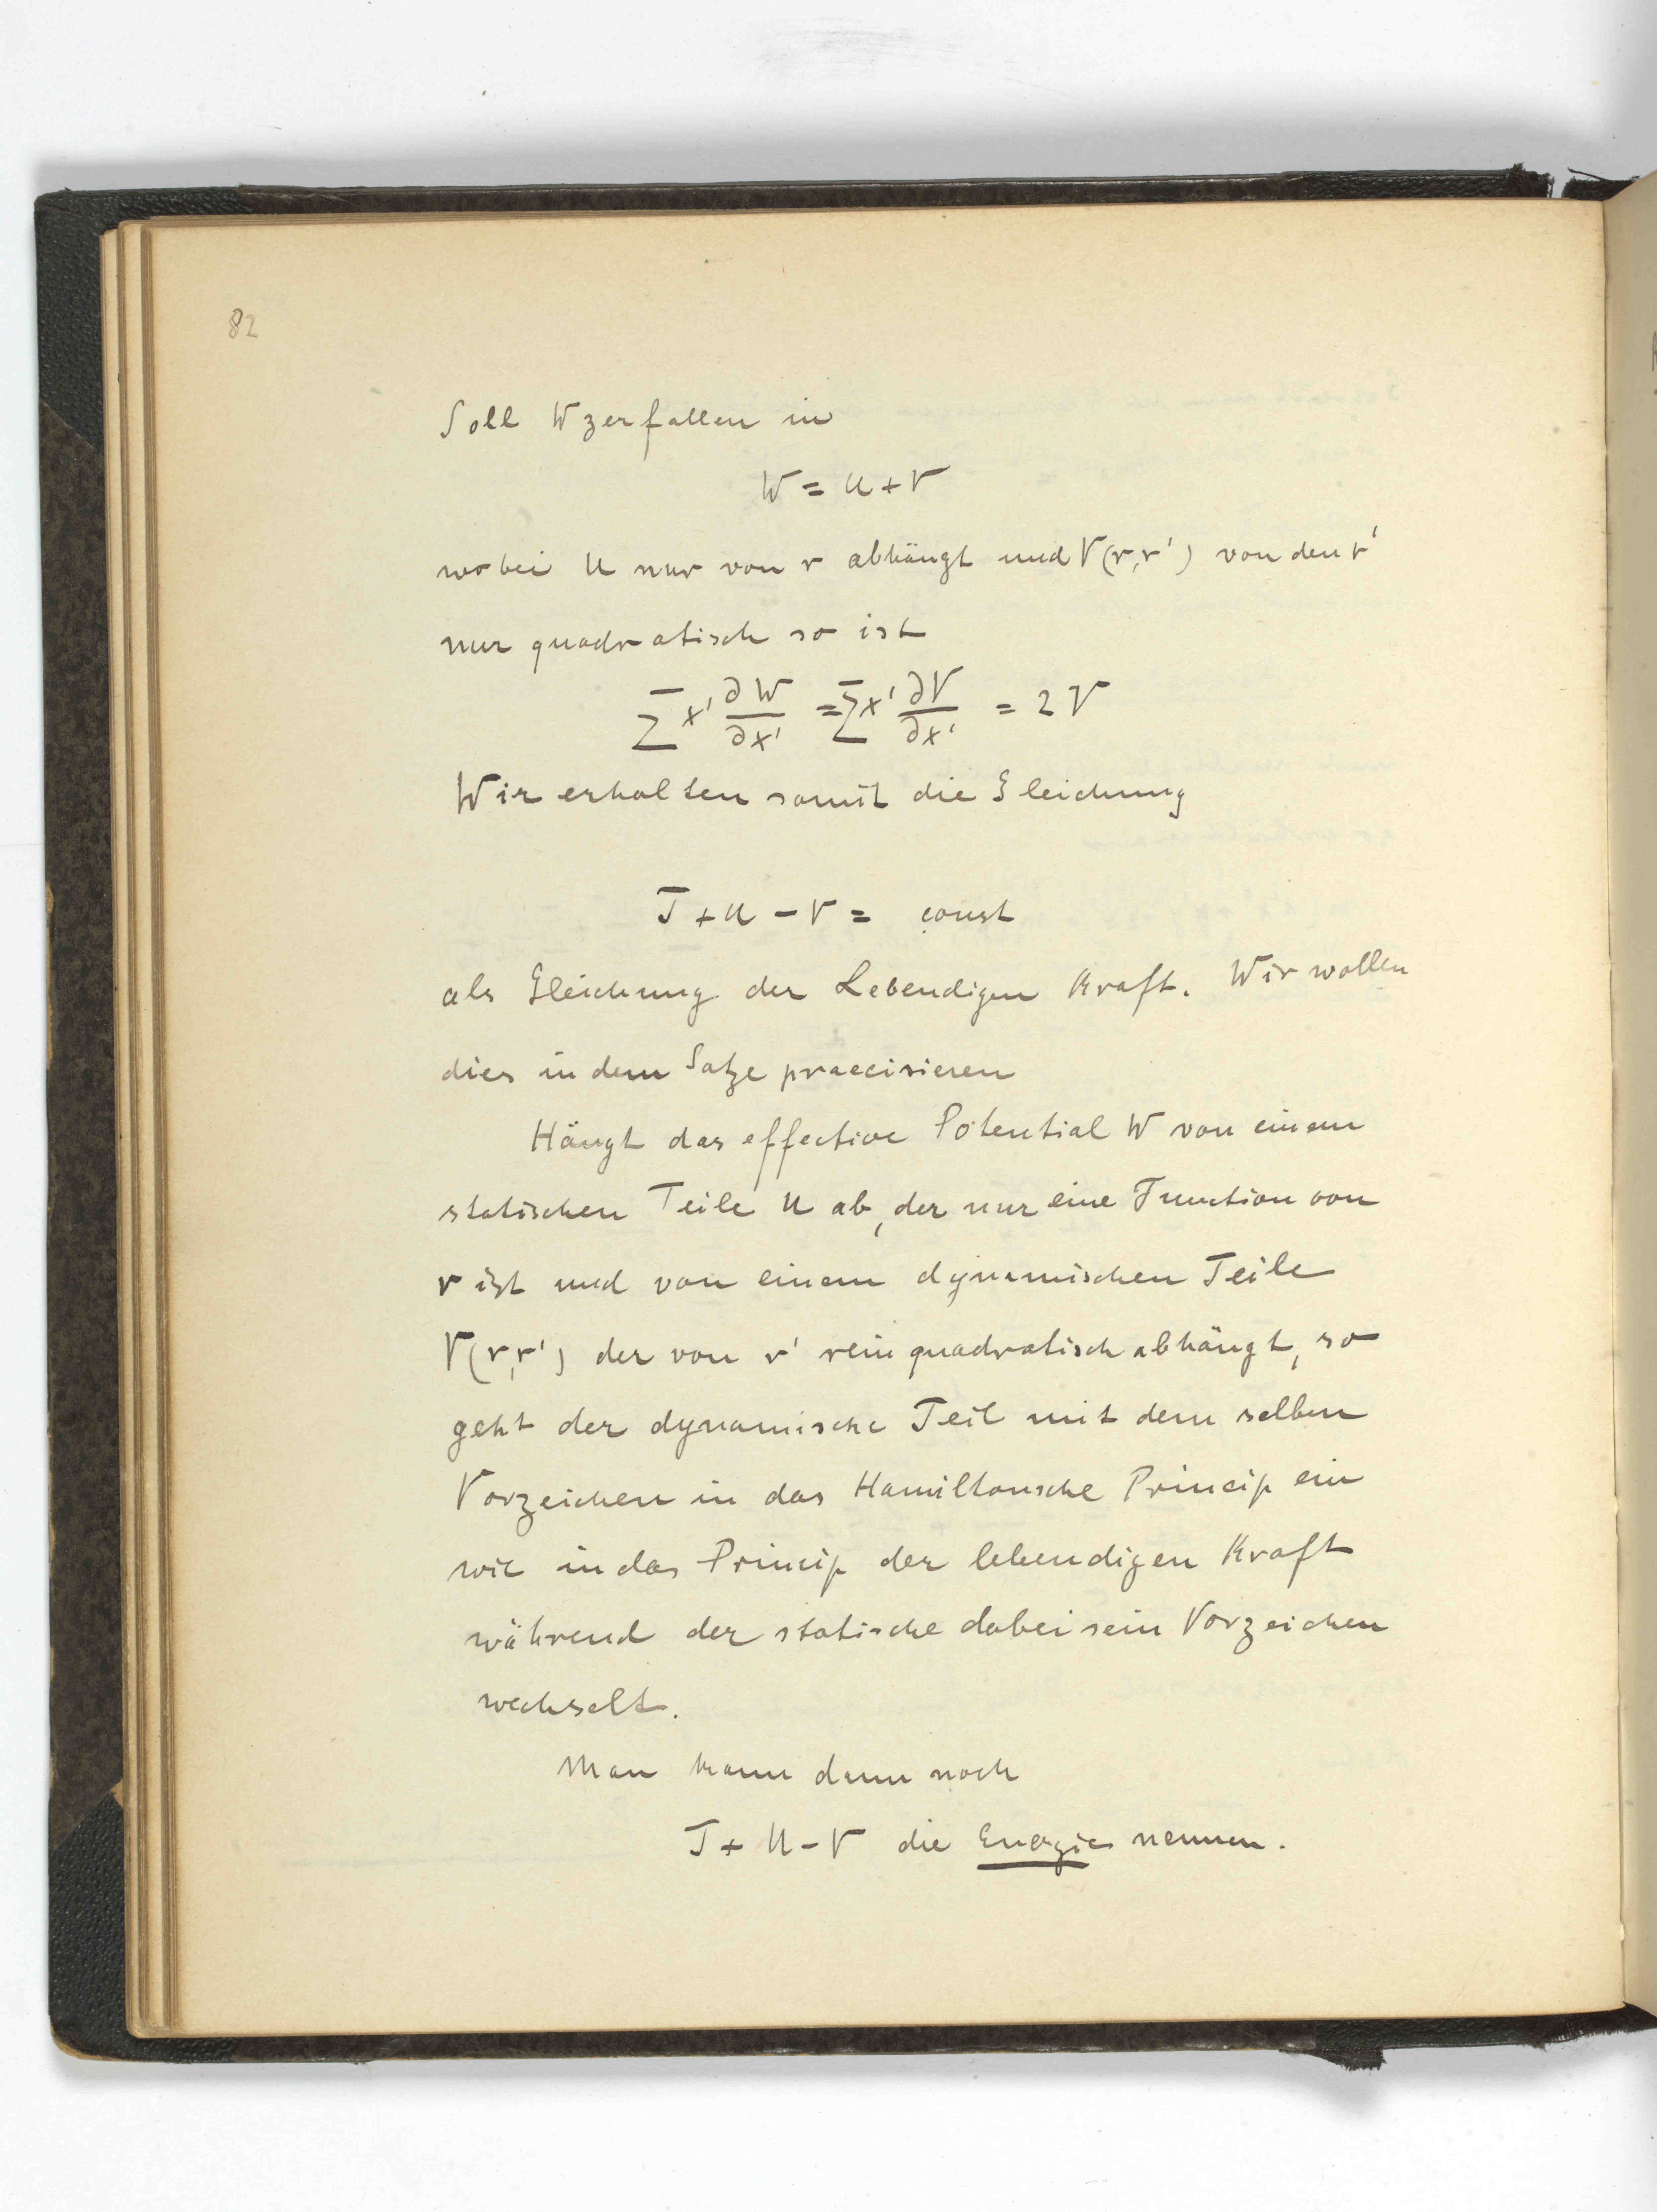 82
Soll W zerfallen in
W = U + V
wobei U nur von r abhängt und V(r,r') von den r'
nur quadratisch so ist
∑ x' ∂W/∂x' = ∑ x' ∂V/∂x' = 2V
Wir erhalten somit die Gleichung
T + U − V = const
als Gleichung der Lebendigen Kraft. Wir wollen
dies in dem Satze praecisieren
Hängt das effective Potential W von einem
statischen Teile U ab, der nur eine Function von
r ist und von einem dynamischen Teile
V(r,r') der von r' rein quadratisch abhängt, so
geht der dynamische Teil mit dem selben
Vorzeichen in das Hamiltonsche Princip ein
wie in das Princip der lebendigen Kraft
während der statische dabei sein Vorzeichen
wechselt.
Man kann dann noch
T + U − V die Energie nennen.